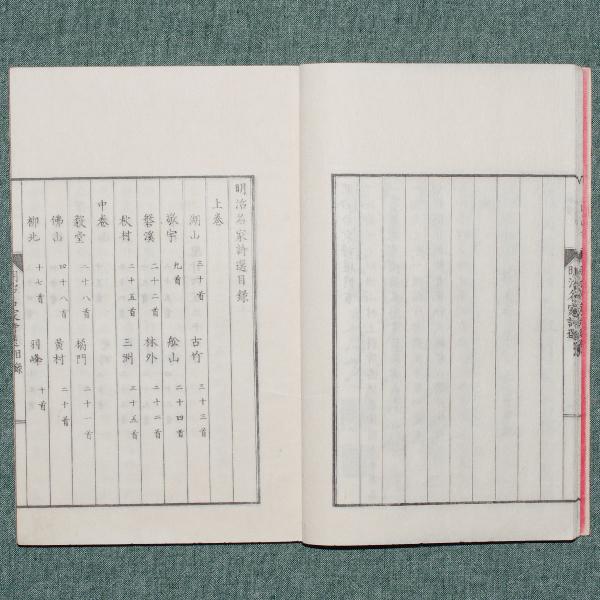 明治名家詩選
明治名家詩選目錄
上卷
湖山 三十首 古竹 三十三首
敬宇 九首 松山 二十四首
磐溪 二十二首 林外 二十二首
秋村 二十五首 三洲 三十五首
中卷
毅堂 二十八首 橘門 二十一首
佛山 四十八首 黃村 二十首
柳北 十七首 羽峰 十首